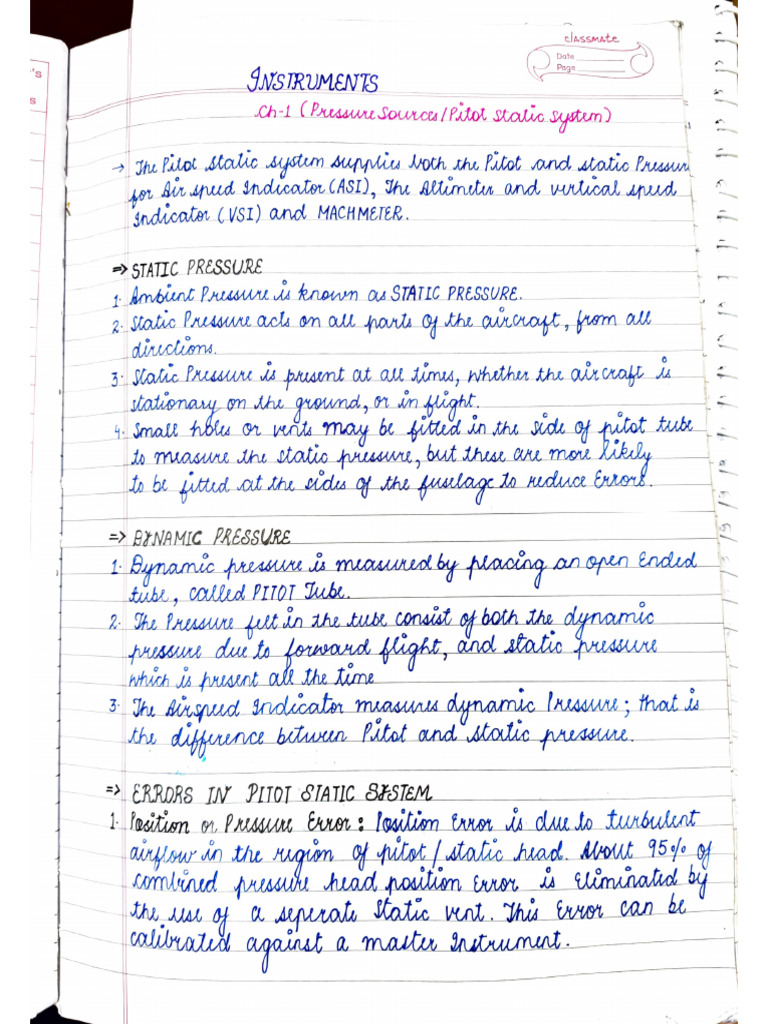 classmate
Date
Page
's
s
INSTRUMENTS
Ch-1 (Pressure Sources/Pitot Static System)
→ The Pitot Static system supplies both the Pitot and static Pressure
for Air speed Indicator (ASI), The Altimeter and vertical speed
Indicator (VSI) and MACHMETER.
⇒ STATIC PRESSURE
1. Ambient Pressure is known as STATIC PRESSURE.
2. Static Pressure acts on all parts of the aircraft, from all
directions.
3. Static Pressure is present at all times, whether the aircraft is
stationary on the ground, or in flight.
4. Small holes or vents may be fitted in the side of pitot tube
to measure the static pressure, but these are more likely
to be fitted at the sides of the fuselage to reduce Errors.
⇒ DYNAMIC PRESSURE
1. Dynamic pressure is measured by placing an open Ended
tube, called PITOT Tube.
2. The Pressure felt in the tube consist of both the dynamic
pressure due to forward flight, and static pressure
which is present all the time
3. The Airspeed Indicator measures dynamic Pressure; that is
the difference between Pitot and static pressure.
⇒ ERRORS IN PITOT STATIC SYSTEM
1. Position or Pressure Error: Position Error is due to turbulent
airflow in the region of pitot/static head. About 95% of
combined pressure head position Error is Eliminated by
the use of a seperate Static vent. This Error can be
calibrated against a master Instrument.